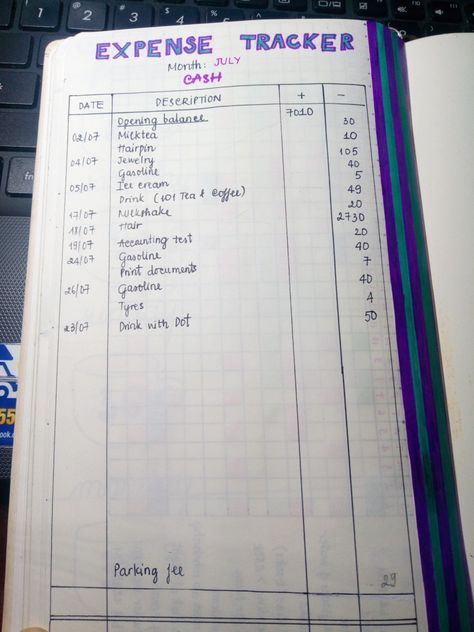 EXPENSE TRACKER
Month: JULY
CASH
DATE DESCRIPTION + -
Opening balance 7010
02/07 Milktea 30
Hairpin 10
04/07 Jewelry 105
Gasoline 40
05/07 Ice cream 5
Drink (101 Tea & Coffee) 49
17/07 Milkshake 20
18/07 Hair 2730
19/07 Accounting test 20
24/07 Gasoline 40
Print documents 7
26/07 Gasoline 40
Tyres 4
23/07 Drink with Dot 50
Parking fee 29